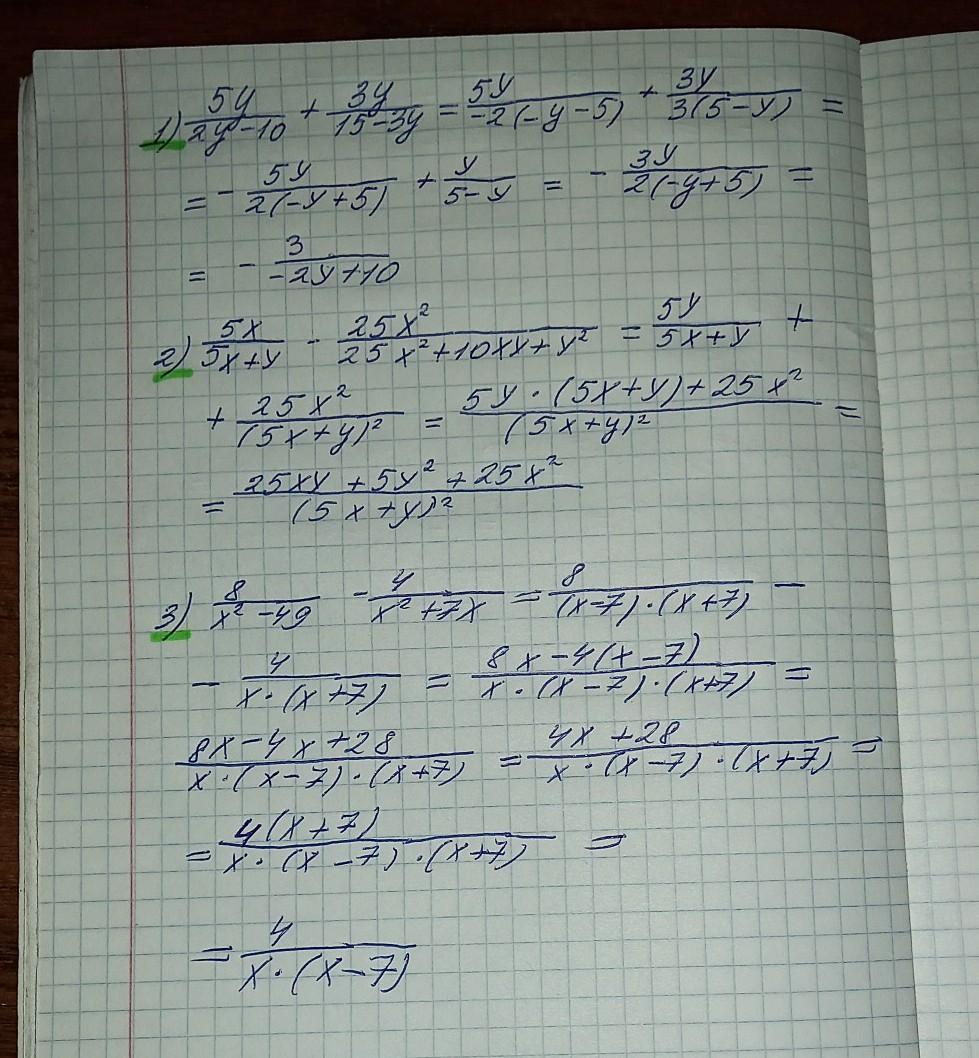 1) 5y/(2y-10) + 3y/(15-3y) = 5y/(-2(-y-5)) + 3y/(3(5-y)) =
= - 5y/(2(-y+5)) + y/(5-y) = - 3y/(2(-y+5)) =
= - 3/(-2y+10)
2) 5x/(5x+y) - 25x²/(25x²+10xy+y²) = 5y/(5x+y) +
+ 25x²/(5x+y)² = (5y·(5x+y)+25x²)/(5x+y)² =
= (25xy+5y²+25x²)/(5x+y)²
3) 8/(x²-49) - 4/(x²+7x) = 8/((x-7)·(x+7)) -
- 4/(x·(x+7)) = (8x-4(x-7))/(x·(x-7)·(x+7)) =
(8x-4x+28)/(x·(x-7)·(x+7)) = (4x+28)/(x·(x-7)·(x+7)) =
= 4(x+7)/(x·(x-7)·(x+7)) =
= 4/(x·(x-7))